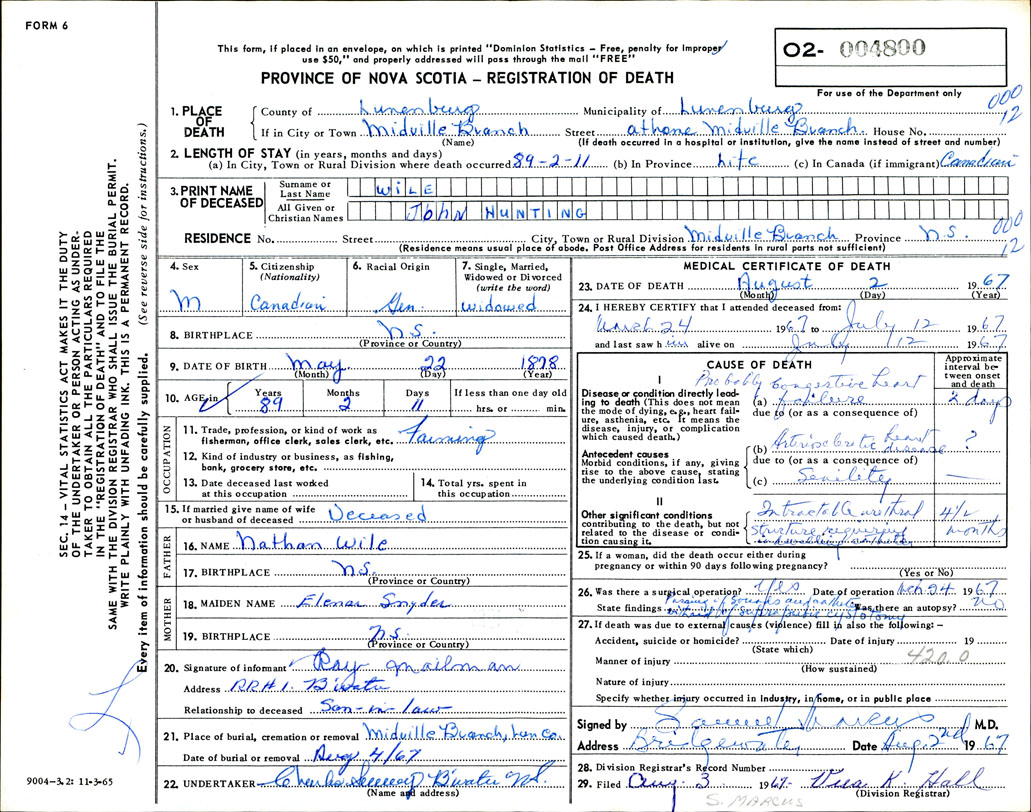 FORM 6
This form, if placed in an envelope, on which is printed "Dominion Statistics – Free, penalty for improper
use $50," and properly addressed will pass through the mail "FREE"
PROVINCE OF NOVA SCOTIA – REGISTRATION OF DEATH
02- 004800
For use of the Department only
000
12
1. PLACE OF DEATH
County of Lunenburg Municipality of Lunenburg
If in City or Town Midville Branch Street at home Midville Branch. House No.
(Name) (If death occurred in a hospital or institution, give the name instead of street and number)
2. LENGTH OF STAY (in years, months and days)
(a) In City, Town or Rural Division where death occurred 89-2-11 (b) In Province life (c) In Canada (if immigrant) Canadian
3. PRINT NAME OF DECEASED
Surname or Last Name WILE
All Given or Christian Names JOHN HUNTING
RESIDENCE No. Street City, Town or Rural Division Midville Branch Province N.S.
000
12
(Residence means usual place of abode. Post Office Address for residents in rural parts not sufficient)
4. Sex M
5. Citizenship (Nationality) Canadian
6. Racial Origin Ger.
7. Single, Married, Widowed or Divorced (write the word) widowed
8. BIRTHPLACE N.S.
(Province or Country)
9. DATE OF BIRTH May 22 1878
(Month) (Day) (Year)
10. AGE in Years 89 Months 2 Days 11 If less than one day old hrs. or min.
OCCUPATION
11. Trade, profession, or kind of work as
fisherman, office clerk, sales clerk, etc. Farming
12. Kind of industry or business, as fishing,
bank, grocery store, etc.
13. Date deceased last worked
at this occupation
14. Total yrs. spent in
this occupation
15. If married give name of wife
or husband of deceased Deceased
FATHER
16. NAME Nathan Wile
17. BIRTHPLACE N.S.
(Province or Country)
MOTHER
18. MAIDEN NAME Elenor Snyder
19. BIRTHPLACE N.S.
(Province or Country)
20. Signature of informant Ray Mailman
Address RR#1. B'water
Relationship to deceased Son-in law
21. Place of burial, cremation or removal Midville Branch, Lun Co.
Date of burial or removal Aug 4/67
22. UNDERTAKER Charles B'water NS.
(Name and address)
MEDICAL CERTIFICATE OF DEATH
23. DATE OF DEATH August 2 1967
(Month) (Day) (Year)
24. I HEREBY CERTIFY that I attended deceased from:
March 24 1967 to July 12 1967
and last saw him alive on July 12 1967
CAUSE OF DEATH
Approximate interval between onset and death
I
Disease or condition directly leading to death (This does not mean the mode of dying, e.g., heart failure, asthenia, etc. It means the disease, injury, or complication which caused death.)
Probably Congestive heart
(a) failure 2 days
due to (or as a consequence of)
Antecedent causes
Morbid conditions, if any, giving rise to the above cause, stating the underlying condition last.
(b) heart disease ?
due to (or as a consequence of)
(c) Senility —
II
Other significant conditions
contributing to the death, but not related to the disease or condition causing it.
Intractable urethral
stricture requiring
4½ months
25. If a woman, did the death occur either during
pregnancy or within 90 days following pregnancy?
(Yes or No)
26. Was there a surgical operation? Yes Date of operation 24 1967
State findings Was there an autopsy? No
27. If death was due to external causes (violence) fill in also the following: –
Accident, suicide or homicide? Date of injury 19
(State which)
420.0
Manner of injury
(How sustained)
Nature of injury
Specify whether injury occurred in Industry, in home, or in public place
Signed by Samuel Marcus M.D.
Address Bridgewater Date Aug. 2nd 1967
28. Division Registrar's Record Number
29. Filed Aug. 3 1967 K. Hall
(Division Registrar)
S. MARCUS
SEC. 14 – VITAL STATISTICS ACT MAKES IT THE DUTY
OF THE UNDERTAKER OR PERSON ACTING AS UNDERTAKER TO OBTAIN ALL THE PARTICULARS REQUIRED
IN THE "REGISTRATION OF DEATH" AND TO FILE THE
SAME WITH THE DIVISION REGISTRAR WHO SHALL ISSUE THE BURIAL PERMIT.
WRITE PLAINLY WITH UNFADING INK. THIS IS A PERMANENT RECORD.
Every item of information should be carefully supplied. (See reverse side for instructions.)
9004-3.2: 11-3-65